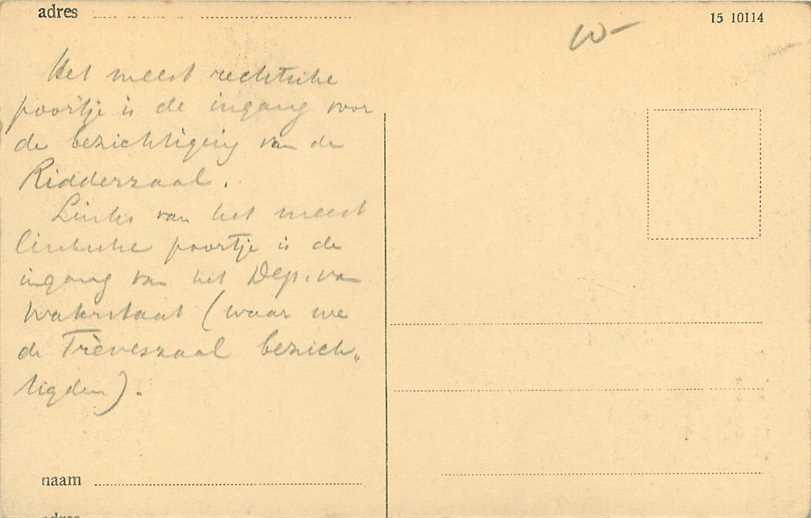 adres
15 10114
Het meest rechtsche
poortje is de ingang voor
de bezichtiging van de
Ridderzaal.
Links van het meest
linksche poortje is de
ingang van het Dep. van
Waterstaat (waar we
de Trèveszaal bezich-
tigden).
naam
adres